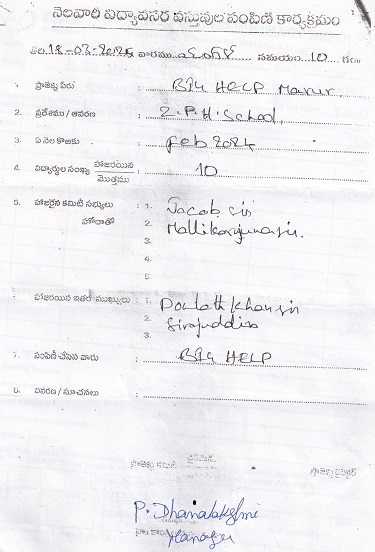 నెలవారీ విద్యావసర వస్తువుల పంపిణీ కార్యక్రమం
తేది. 18-03-2024 వారము సమయం 10 గం॥
1. ప్రాజెక్టు పేరు : BIG HELP
2. ప్రదేశము / ఆవరణ : Z.P.H. School,
3. ఏ నెల కొఱకు : feb 2024
4. విద్యార్థుల సంఖ్య హాజరయిన / మొత్తము : 10
5. హాజరైన కమిటీ సభ్యులు : 1. Jacob sir
హోదాతో 2. Mallikarjuna sir.
3.
4.
5.
హాజరయిన ఇతర ముఖ్యులు : 1. Doulath khan sir
2. Sirajuddin
3.
7. పంపిణీ చేసిన వారు : BIG HELP
8. వివరణ / సూచనలు :
ప్రాజెక్టు కమిటీ
ప్రాజెక్టు డైరెక్టర్
P. Dhanalakshmi
Manager